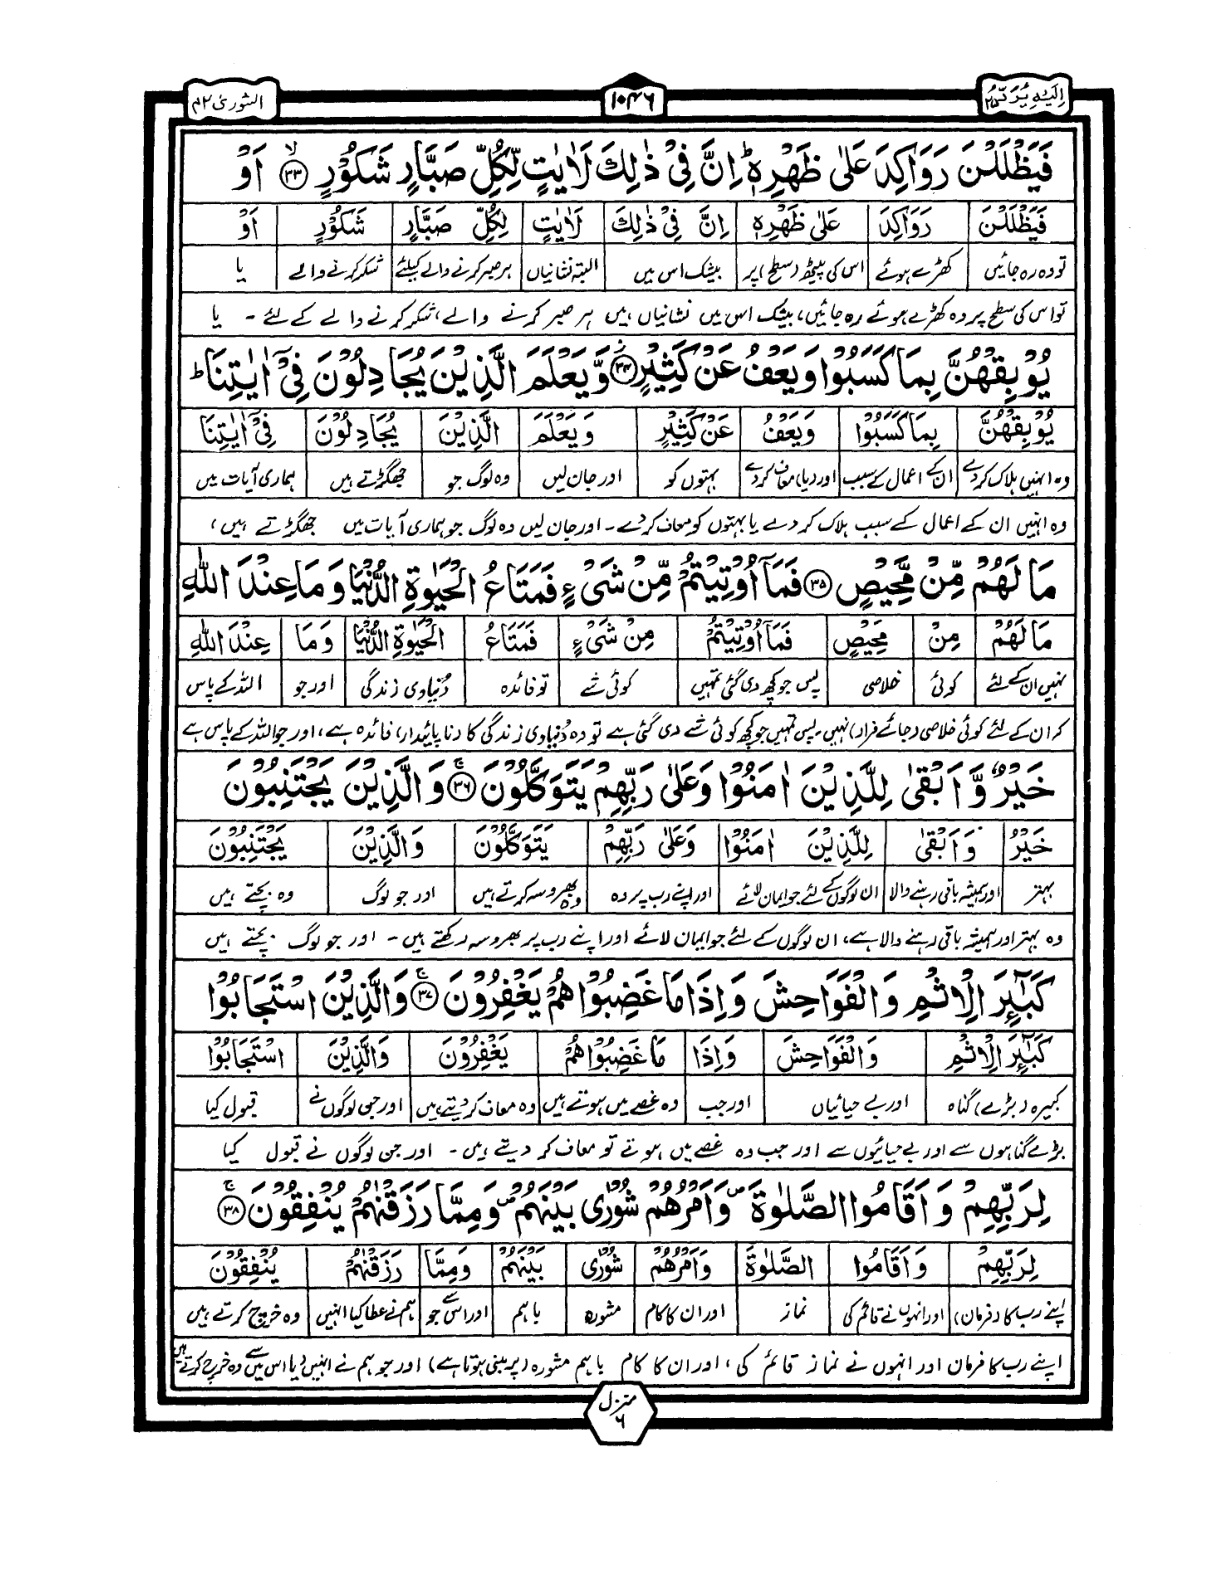 الشورىٰ ۴۲
۱۰۴۶
اِلَيْهِ يُرَدُّ ۲۵
فَيَظْلَلْنَ رَوَاكِدَ عَلٰى ظَهْرِهٖ ؕ اِنَّ فِيْ ذٰلِكَ لَاٰيٰتٍ لِّكُلِّ صَبَّارٍ شَكُوْرٍ ۙ﴿۳۳﴾ اَوْ
فَيَظْلَلْنَ رَوَاكِدَ عَلٰى ظَهْرِهٖ اِنَّ فِيْ ذٰلِكَ لَاٰيٰتٍ لِكُلِّ صَبَّارٍ شَكُوْرٍ اَوْ
تو وہ رہ جائیں کھڑے ہوئے اس کی پیٹھ (سطح) پر بیشک اس میں البتہ نشانیاں ہر صبر کرنے والے کیلئے شکر کرنے والے یا
تو اس کی سطح پر وہ کھڑے ہوئے رہ جائیں، بیشک اس میں نشانیاں ہیں ہر صبر کرنے والے، شکر کرنے والے کے لئے ۔ یا
يُوْبِقْهُنَّ بِمَا كَسَبُوْا وَيَعْفُ عَنْ كَثِيْرٍ ۙ﴿۳۴﴾ وَّيَعْلَمَ الَّذِيْنَ يُجَادِلُوْنَ فِيْۤ اٰيٰتِنَا ؕ
يُوْبِقْهُنَّ بِمَا كَسَبُوْا وَيَعْفُ عَنْ كَثِيْرٍ وَيَعْلَمَ الَّذِيْنَ يُجَادِلُوْنَ فِيْۤ اٰيٰتِنَا
وہ انہیں ہلاک کردے ان کے اعمال کے سبب اور دیا، معاف کردے بہتوں کو اور جان لیں وہ لوگ جو جھگڑتے ہیں ہماری آیات میں
وہ انہیں ان کے اعمال کے سبب ہلاک کر دے یا بہتوں کو معاف کر دے ۔ اور جان لیں وہ لوگ جو ہماری آیات میں جھگڑتے ہیں،
مَا لَهُمْ مِّنْ مَّحِيْصٍ ﴿۳۵﴾ فَمَاۤ اُوْتِيْتُمْ مِّنْ شَيْءٍ فَمَتَاعُ الْحَيٰوةِ الدُّنْيَا وَمَا عِنْدَ اللّٰهِ
مَا لَهُمْ مِنْ مَحِيْصٍ فَمَاۤ اُوْتِيْتُمْ مِنْ شَيْءٍ فَمَتَاعُ الْحَيٰوةِ الدُّنْيَا وَمَا عِنْدَ اللّٰهِ
نہیں ان کے لئے کوئی خلاصی پس جو کچھ دی گئی تمہیں کوئی شے تو فائدہ دُنیاوی زندگی اور جو اللہ کے پاس
کہ ان کے لئے کوئی خلاصی (جائے فرار) نہیں پس تمہیں جو کچھ کوئی شے دی گئی ہے تو وہ دُنیاوی زندگی کا (ناپائیدار) فائدہ ہے، اور جو اللہ کے پاس ہے
خَيْرٌ وَّاَبْقٰى لِلَّذِيْنَ اٰمَنُوْا وَعَلٰى رَبِّهِمْ يَتَوَكَّلُوْنَ ۚ﴿۳۶﴾ وَالَّذِيْنَ يَجْتَنِبُوْنَ
خَيْرٌ وَاَبْقٰى لِلَّذِيْنَ اٰمَنُوْا وَعَلٰى رَبِّهِمْ يَتَوَكَّلُوْنَ وَالَّذِيْنَ يَجْتَنِبُوْنَ
بہتر اور ہمیشہ باقی رہنے والا ان لوگوں کے لئے جو ایمان لائے اور اپنے رب پر وہ وہ بھروسہ کرتے ہیں اور جو لوگ وہ بچتے ہیں
وہ بہتر اور ہمیشہ باقی رہنے والا ہے، ان لوگوں کے لئے جو ایمان لائے اور اپنے رب پر بھروسہ رکھتے ہیں ۔ اور جو لوگ بچتے ہیں
كَبٰٓئِرَ الْاِثْمِ وَالْفَوَاحِشَ وَاِذَا مَا غَضِبُوْا هُمْ يَغْفِرُوْنَ ۚ﴿۳۷﴾ وَالَّذِيْنَ اسْتَجَابُوْا
كَبٰٓئِرَ الْاِثْمِ وَالْفَوَاحِشَ وَاِذَا مَا غَضِبُوْا هُمْ يَغْفِرُوْنَ وَالَّذِيْنَ اسْتَجَابُوْا
کبیرہ (بڑے) گناہ اور بے حیائیاں اور جب وہ غصے میں ہوتے ہیں وہ معاف کردیتے ہیں اور جن لوگوں نے قبول کیا
بڑے گناہوں سے اور بے حیائیوں سے اور جب وہ غصے میں ہوتے تو معاف کر دیتے ہیں ۔ اور جن لوگوں نے قبول کیا
لِرَبِّهِمْ وَاَقَامُوا الصَّلٰوةَ ۪ وَاَمْرُهُمْ شُوْرٰى بَيْنَهُمْ ۪ وَمِمَّا رَزَقْنٰهُمْ يُنْفِقُوْنَ ۚ﴿۳۸﴾
لِرَبِّهِمْ وَاَقَامُوا الصَّلٰوةَ وَاَمْرُهُمْ شُوْرٰى بَيْنَهُمْ وَمِمَّا رَزَقْنٰهُمْ يُنْفِقُوْنَ
اپنے رب کا (فرمان) اور انہوں نے قائم کی نماز اور ان کا کام مشورہ باہم اور اس سے جو ہم نے عطا کیا انہیں وہ خرچ کرتے ہیں
اپنے رب کا فرمان اور انہوں نے نماز قائم کی، اور ان کا کام باہم مشورہ (پر مبنی ہوتا ہے) اور جو ہم نے انہیں دیا اس میں سے وہ خرچ کرتے ہیں
منزل ۶